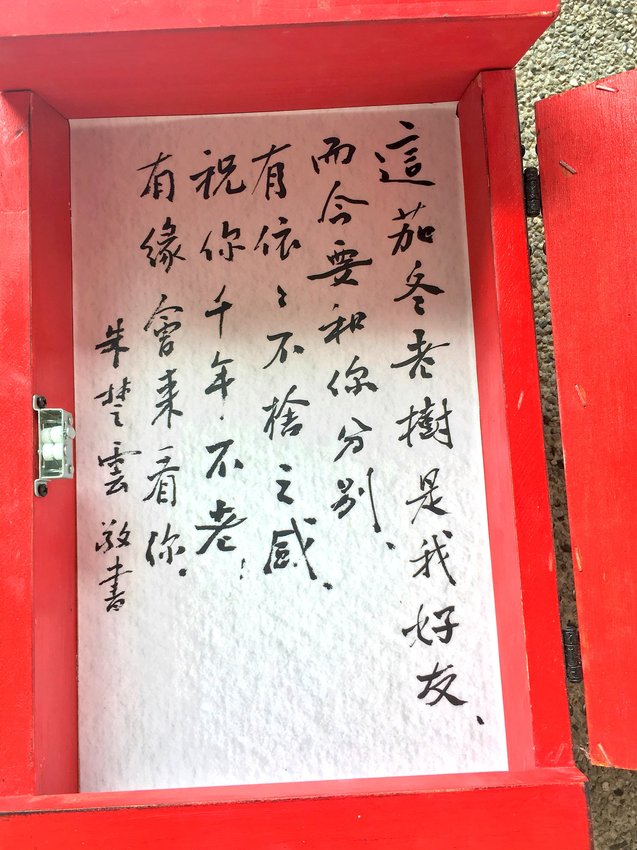 這茄冬老樹是我好友、
而今要和你分別、
有依々不捨之感、
祝你千年不老！
有緣會来看你.
朱楚雲敬書